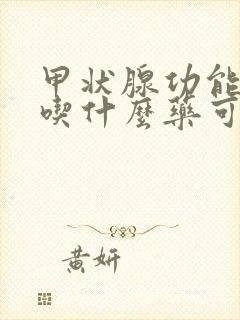 甲状腺功能
喫什麼藥可
黄妍